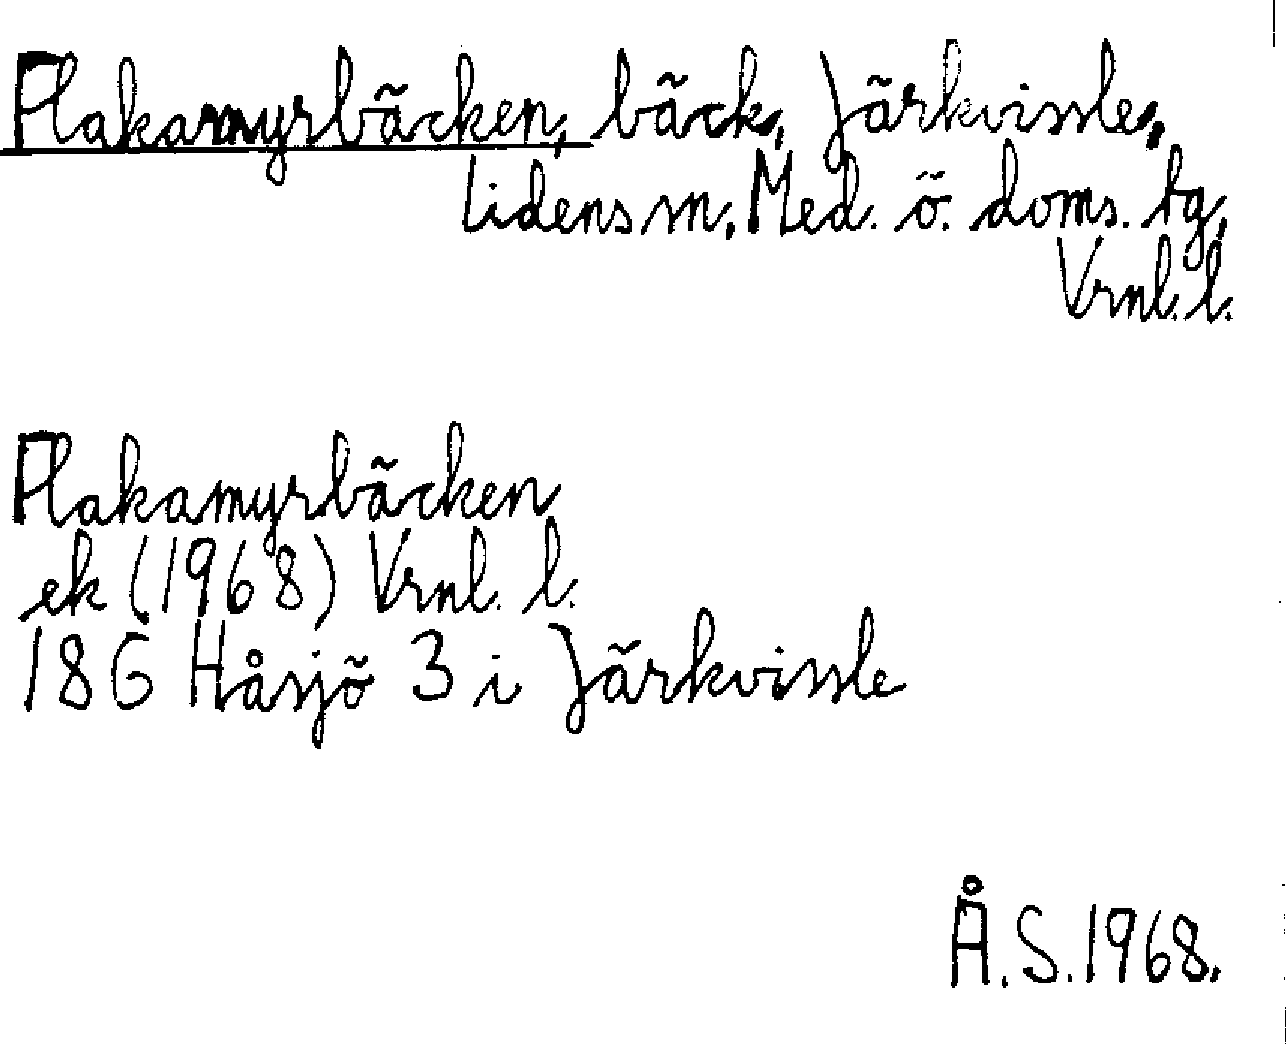 Flakamyrbäcken, bäck, Järkvissle,
Lidens sn, Med. ö. doms. tg,
Vrnl. l.
Flakamyrbäcken
ek (1968) Vrnl. l.
18G Håsjö 3 i Järkvissle
Å.S. 1968.